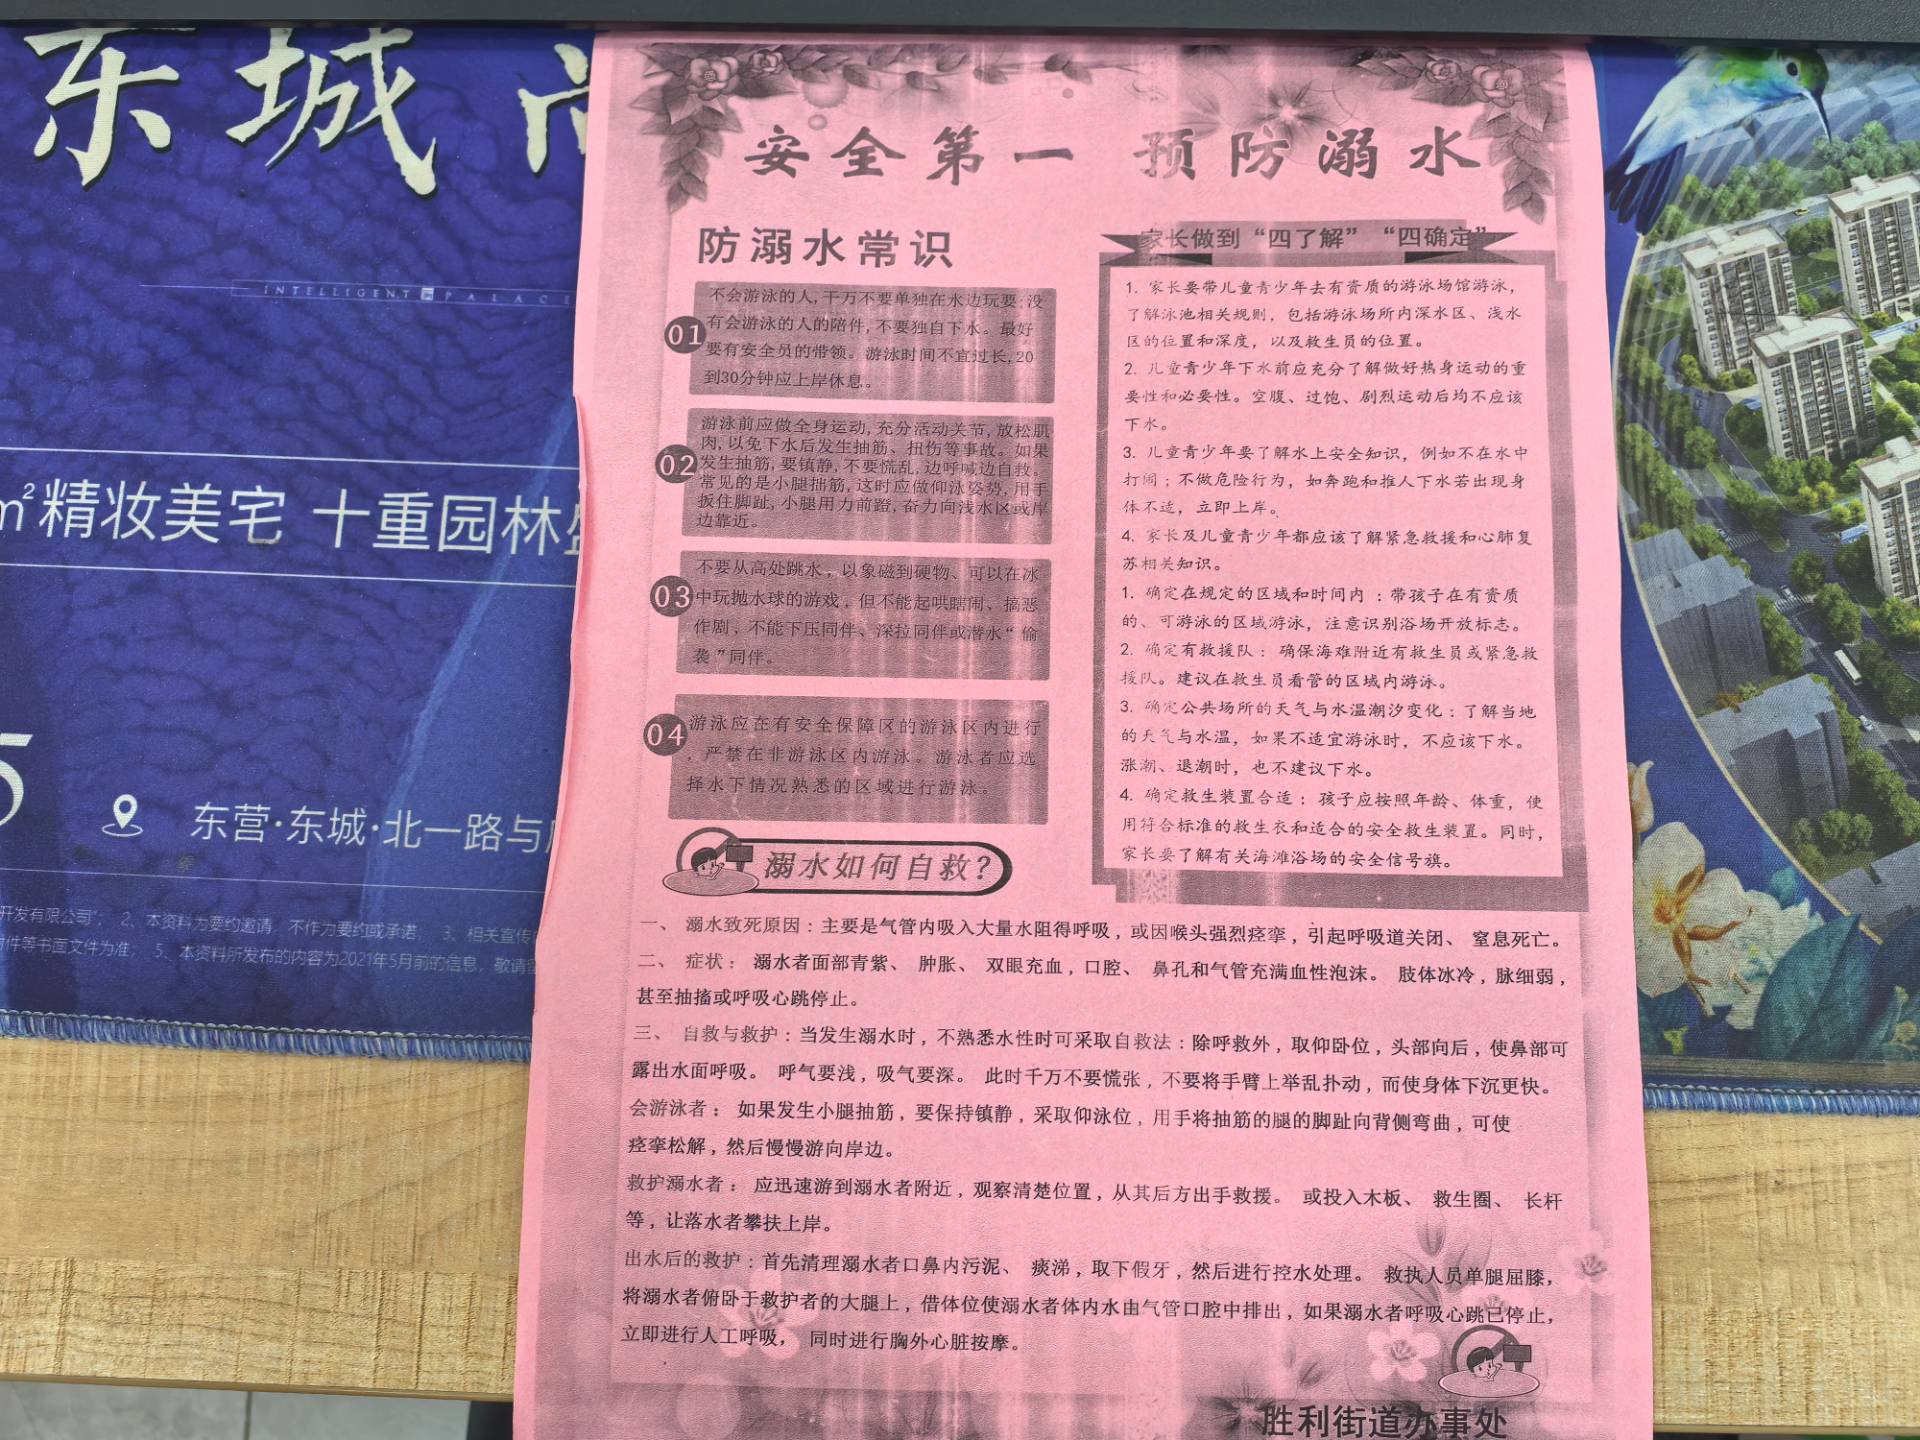 东城
INTELLIGENT PALACE
m²精妆美宅 十重园林
5
东营·东城·北一路与
开发有限公司”； 2、本资料为要约邀请，不作为要约或承诺； 3、相关宣传
附件等书面文件为准； 5、本资料所发布的内容为2021年5月前的信息，敬请
安全第一 预防溺水
防溺水常识
01
不会游泳的人,千万不要单独在水边玩耍;没
有会游泳的人的陪伴,不要独自下水。最好
要有安全员的带领。游泳时间不宜过长,20
到30分钟应上岸休息。
02
游泳前应做全身运动,充分活动关节,放松肌
肉,以免下水后发生抽筋、扭伤等事故。如果
发生抽筋,要镇静,不要慌乱,边呼喊边自救。
常见的是小腿拙筋,这时应做仰泳姿势,用手
扳住脚趾,小腿用力前蹬,奋力向浅水区或岸
边靠近。
03
不要从高处跳水，以象磁到硬物、可以在冰
中玩抛水球的游戏，但不能起哄瞎闹、搞恶
作剧、不能下压同伴、深拉同伴或潜水“偷
袭”同伴。
04
游泳应在有安全保障区的游泳区内进行
，严禁在非游泳区内游泳。游泳者应选
择水下情况熟悉的区域进行游泳。
家长做到“四了解”“四确定”
1. 家长要带儿童青少年去有资质的游泳场馆游泳，
了解泳池相关规则，包括游泳场所内深水区、浅水
区的位置和深度，以及救生员的位置。
2. 儿童青少年下水前应充分了解做好热身运动的重
要性和必要性。空腹、过饱、剧烈运动后均不应该
下水。
3. 儿童青少年要了解水上安全知识，例如不在水中
打闹；不做危险行为，如奔跑和推人下水若出现身
体不适，立即上岸。
4. 家长及儿童青少年都应该了解紧急救援和心肺复
苏相关知识。
1. 确定在规定的区域和时间内：带孩子在有资质
的、可游泳的区域游泳，注意识别浴场开放标志。
2. 确定有救援队：确保海难附近有救生员或紧急救
援队。建议在救生员看管的区域内游泳。
3. 确定公共场所的天气与水温潮汐变化：了解当地
的天气与水温，如果不适宜游泳时，不应该下水。
涨潮、退潮时，也不建议下水。
4. 确定救生装置合适：孩子应按照年龄、体重，使
用符合标准的救生衣和适合的安全救生装置。同时，
家长要了解有关海滩浴场的安全信号旗。
溺水如何自救？
一、 溺水致死原因：主要是气管内吸入大量水阻得呼吸，或因喉头强烈痉挛，引起呼吸道关闭、 窒息死亡。
二、 症状： 溺水者面部青紫、 肿胀、 双眼充血，口腔、 鼻孔和气管充满血性泡沫。 肢体冰冷，脉细弱，
甚至抽搐或呼吸心跳停止。
三、 自救与救护：当发生溺水时，不熟悉水性时可采取自救法：除呼救外，取仰卧位，头部向后，使鼻部可
露出水面呼吸。 呼气要浅，吸气要深。 此时千万不要慌张，不要将手臂上举乱扑动，而使身体下沉更快。
会游泳者： 如果发生小腿抽筋，要保持镇静，采取仰泳位，用手将抽筋的腿的脚趾向背侧弯曲，可使
痉挛松解，然后慢慢游向岸边。
救护溺水者： 应迅速游到溺水者附近，观察清楚位置，从其后方出手救援。 或投入木板、 救生圈、 长杆
等，让落水者攀扶上岸。
出水后的救护：首先清理溺水者口鼻内污泥、 痰涕，取下假牙，然后进行控水处理。 救执人员单腿屈膝，
将溺水者俯卧于救护者的大腿上，借体位使溺水者体内水由气管口腔中排出，如果溺水者呼吸心跳已停止，
立即进行人工呼吸， 同时进行胸外心脏按摩。
胜利街道办事处